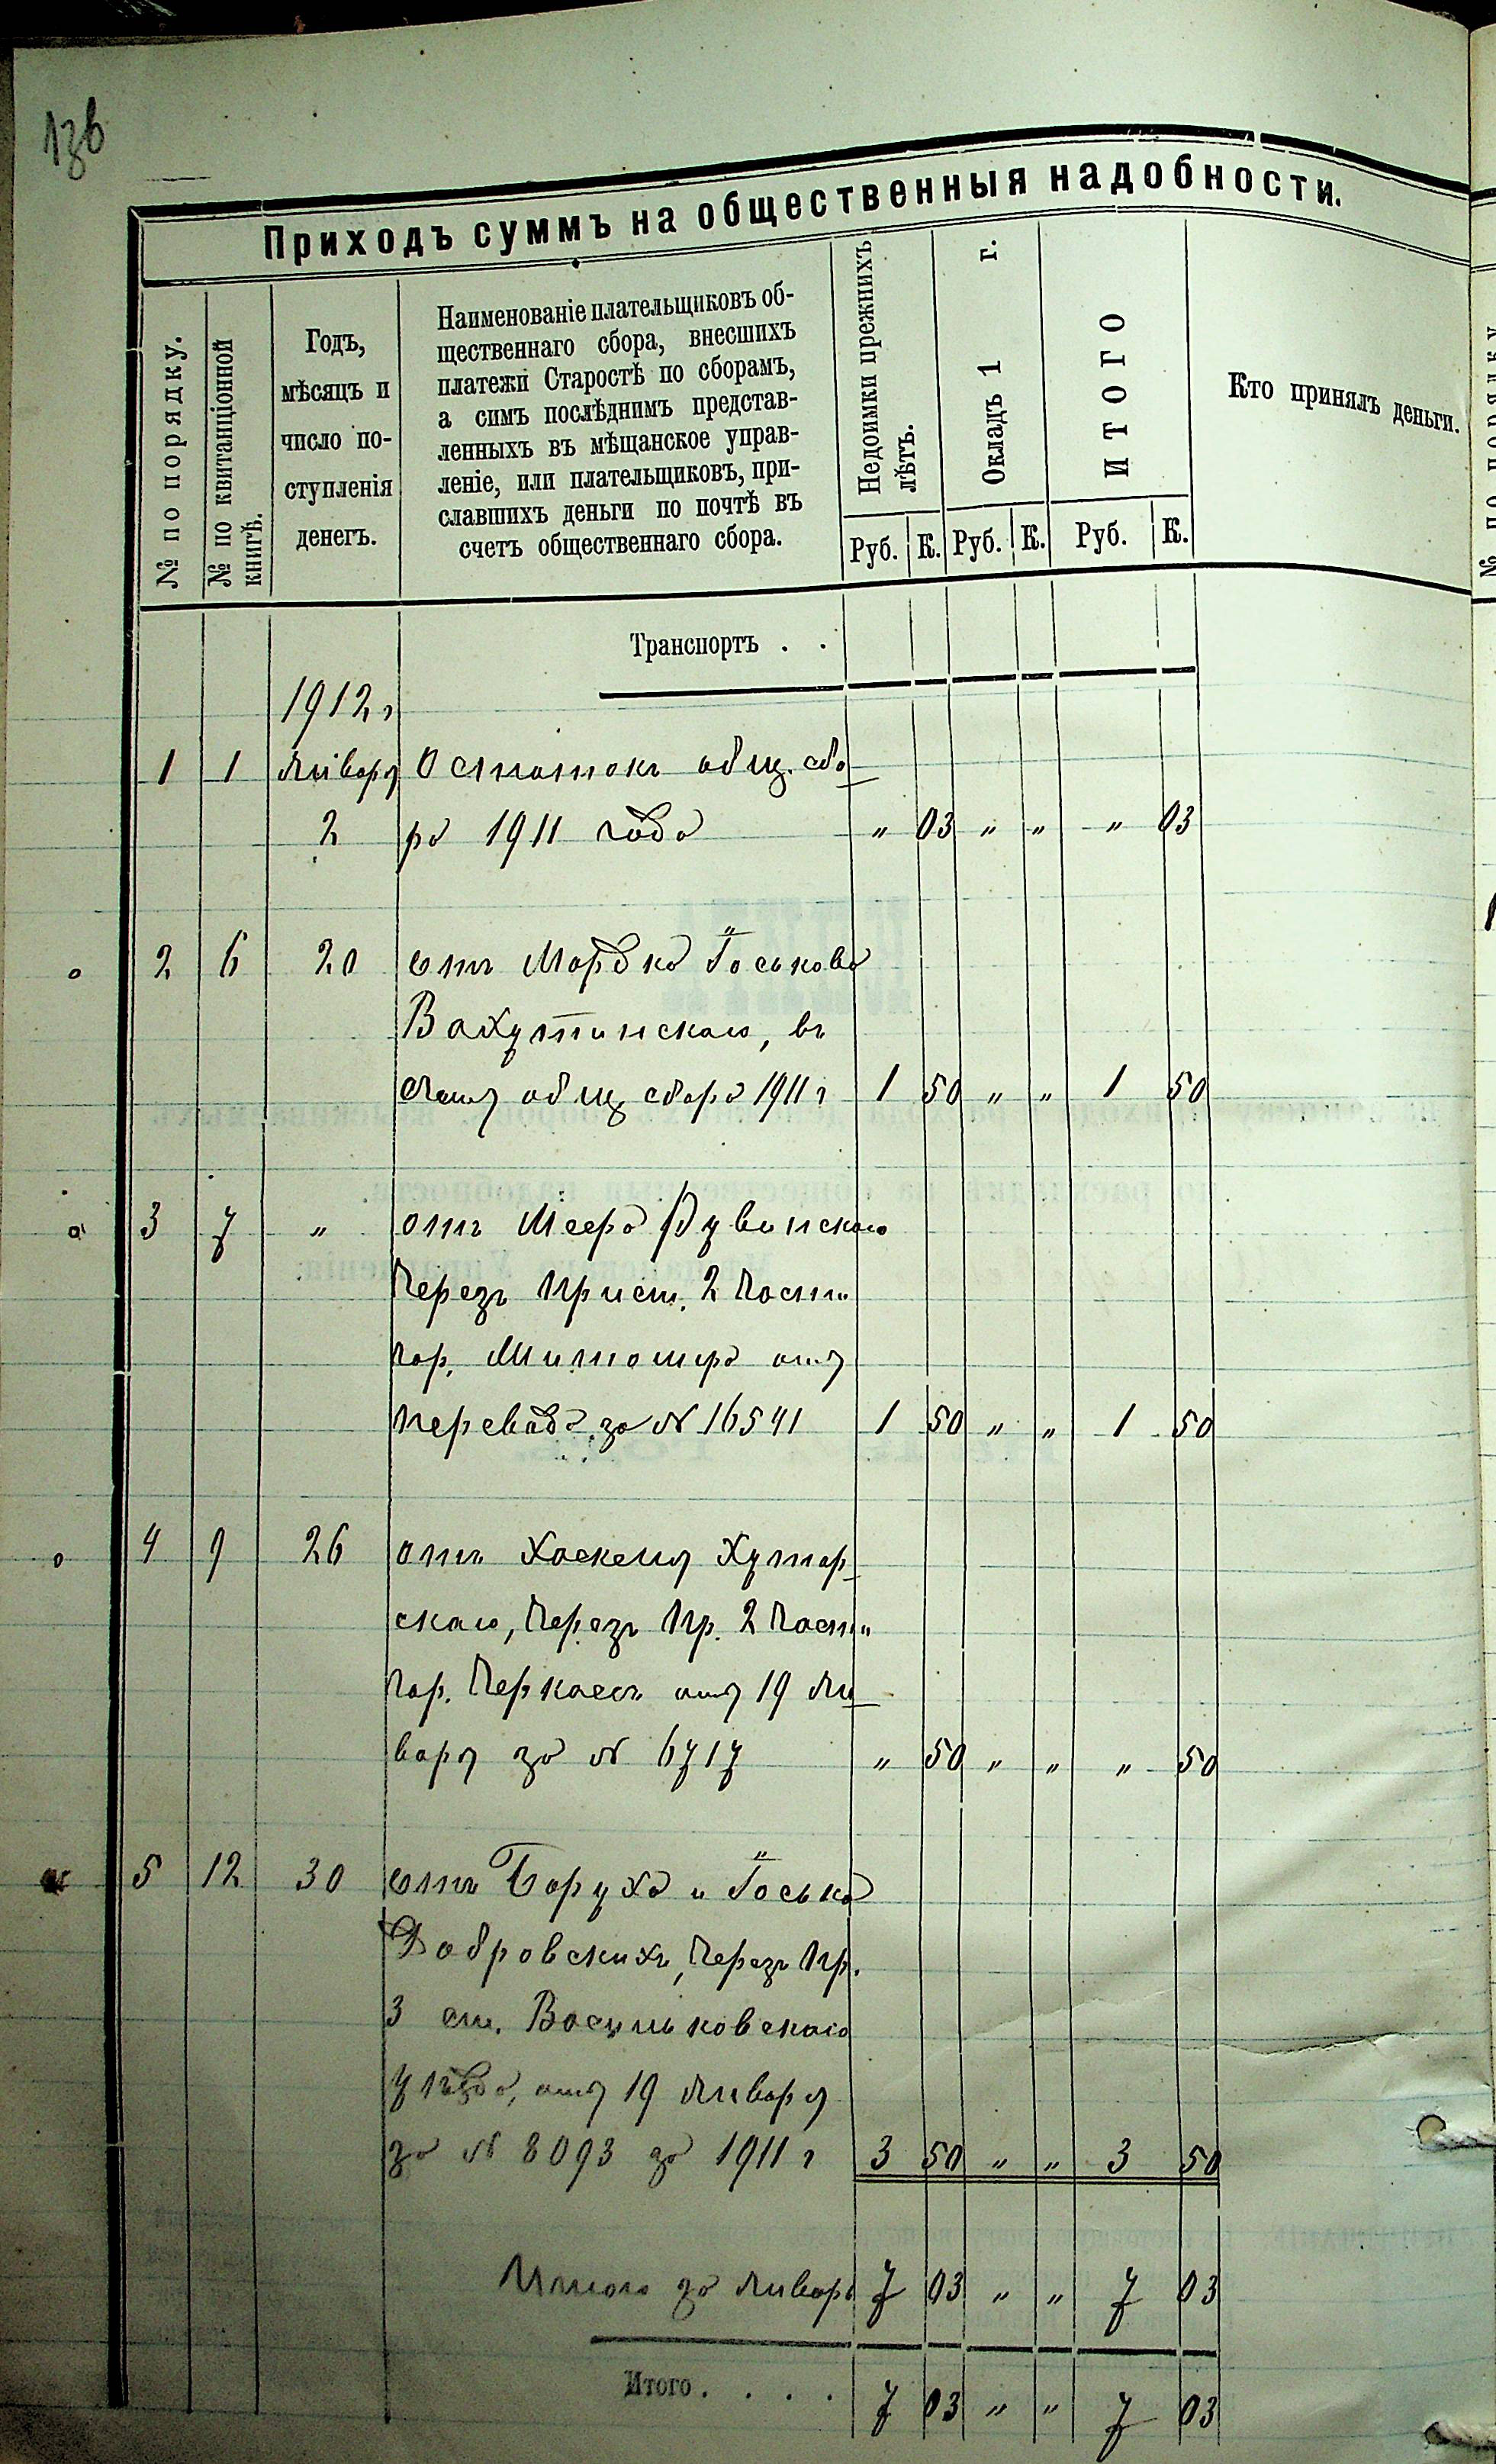 136
Приходъ суммъ на общественныя надобности.
№ по порядку.
№ по квитанціонной
книгѣ.
Годъ,
мѣсяцъ и
число по-
ступленія
денегъ.
Наименованіе плательщиковъ об-
щественнаго сбора, внесшихъ
платежи Старостѣ по сборамъ,
а симъ послѣднимъ представ-
ленныхъ въ мѣщанское управ-
леніе, или плательщиковъ, при-
славшихъ деньги по почтѣ въ
счетъ общественнаго сбора.
Недоимки прежнихъ
лѣтъ.
Окладъ 1 г.
ИТОГО
Кто принялъ деньги.
Руб. К. Руб. К. Руб. К.
Транспортъ . .
1912 г
1 1 Января Остатокъ общ. сбо
2 ра 1911 года " 03 " " " 03
2 6 20 отъ Мордка Іоськова
Вахутинскаго, въ
счетъ общ сбора 1911 г 1 50 " " 1 50
3 7 " отъ Меера Рувинскаго
Черезъ Прист. 2 части
гор. Житомира отъ
перевода за № 16541 1 50 " " 1 50
4 9 26 отъ Хаскеля Хутор
скаго, Черезъ Пр. 2 части
гор. Черкассъ отъ 19 Ян
варя за № 6717 " 50 " " " 50
5 12 30 отъ Боруха и Іоська
Добровскихъ, Черезъ Пр.
3 ст. Васильковскаго
уѣзда, отъ 19 Января
за № 8093 за 1911 г 3 50 " " 3 50
Итого за Январь 7 03 " " 7 03
Итого . . . . 7 03 " " 7 03